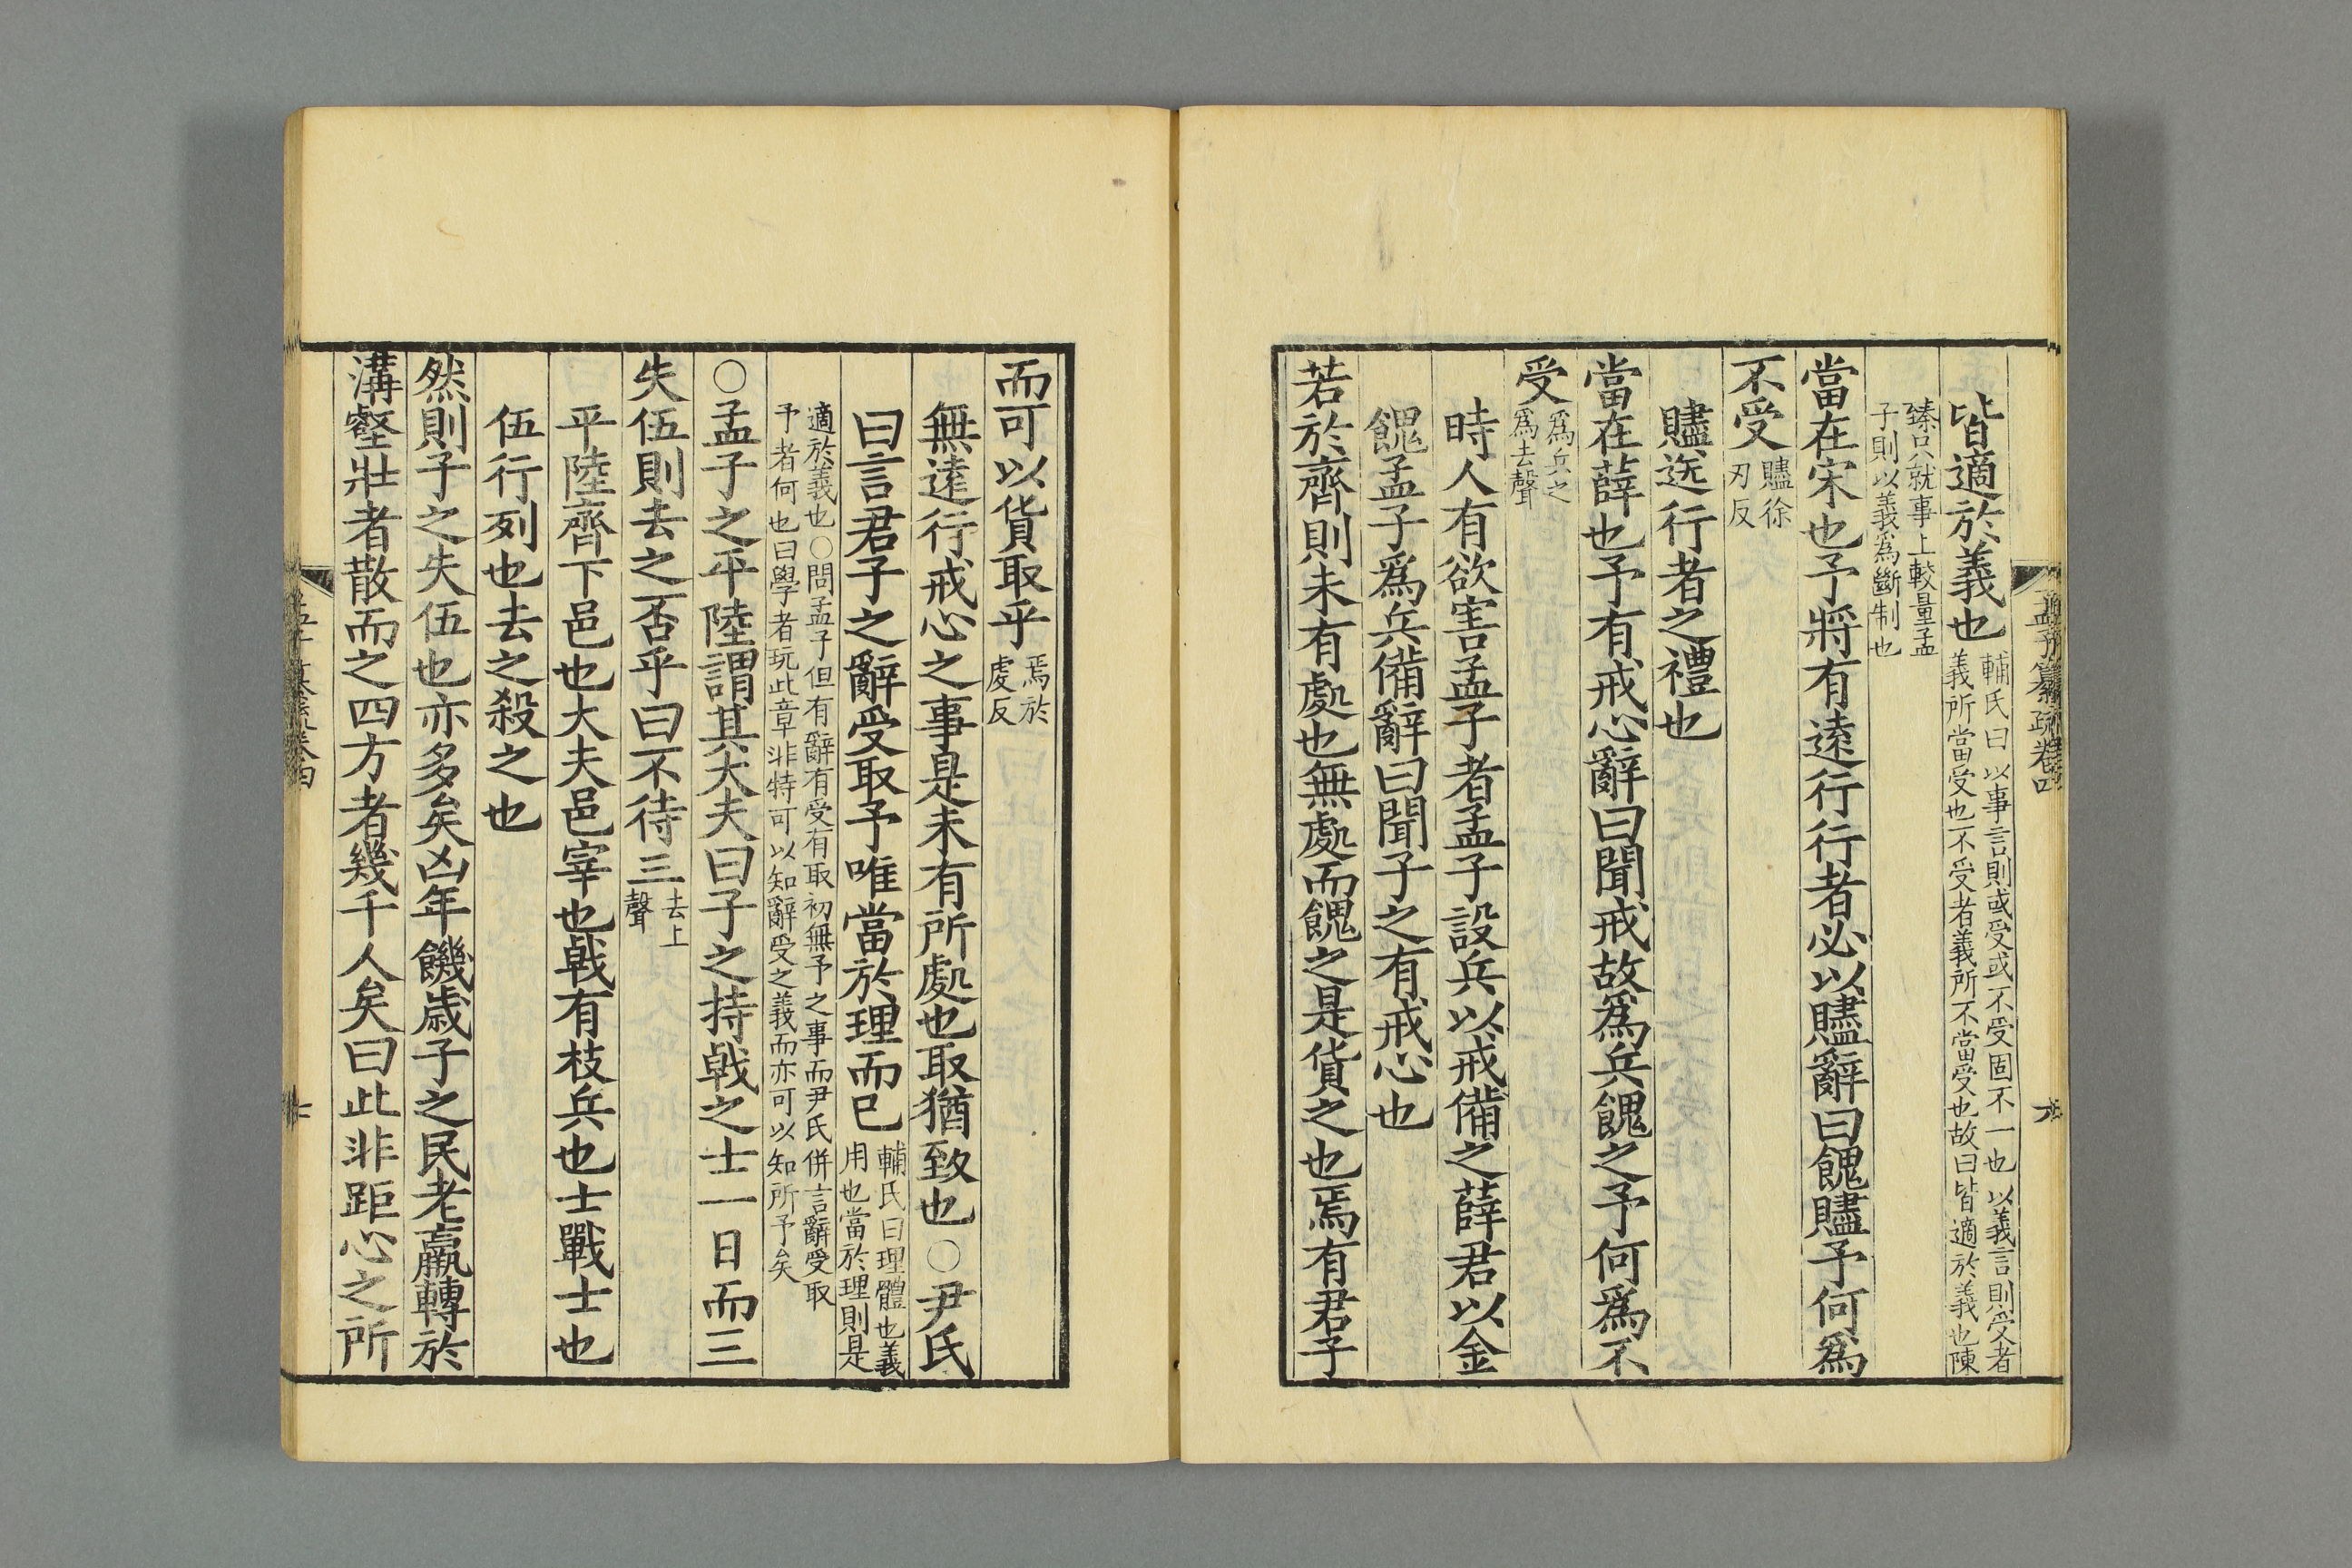 孟子纂疏卷四
六
皆適於義也輔氏曰以事言則或受或不受固不一也以義言則受者義所當受也不受者義所不當受也故曰皆適於義也陳
臻只就事上較量孟子則以義為斷制也
當在宋也予將有遠行行者必以贐辭曰餽贐予何為
不受贐徐刃反
贐送行者之禮也
當在薛也予有戒心辭曰聞戒故為兵餽之予何為不
受為兵之為去聲
時人有欲害孟子者孟子設兵以戒備之薛君以金
餽孟子為兵備辭曰聞子之有戒心也
若於齊則未有處也無處而餽之是貨之也焉有君子
而可以貨取乎焉於虔反
無遠行戒心之事是未有所處也取猶致也○尹氏
曰言君子之辭受取予唯當於理而已輔氏曰理體也義用也當於理則是
適於義也○問孟子但有辭有受有取初無予之事而尹氏併言辭受取予者何也曰學者玩此章非特可以知辭受之義而亦可以知所予矣
○孟子之平陸謂其大夫曰子之持戟之士一日而三
失伍則去之否乎曰不待三去上聲
平陸齊下邑也大夫邑宰也戟有枝兵也士戰士也
伍行列也去之殺之也
然則子之失伍也亦多矣凶年饑歲子之民老羸轉於
溝壑壯者散而之四方者幾千人矣曰此非距心之所